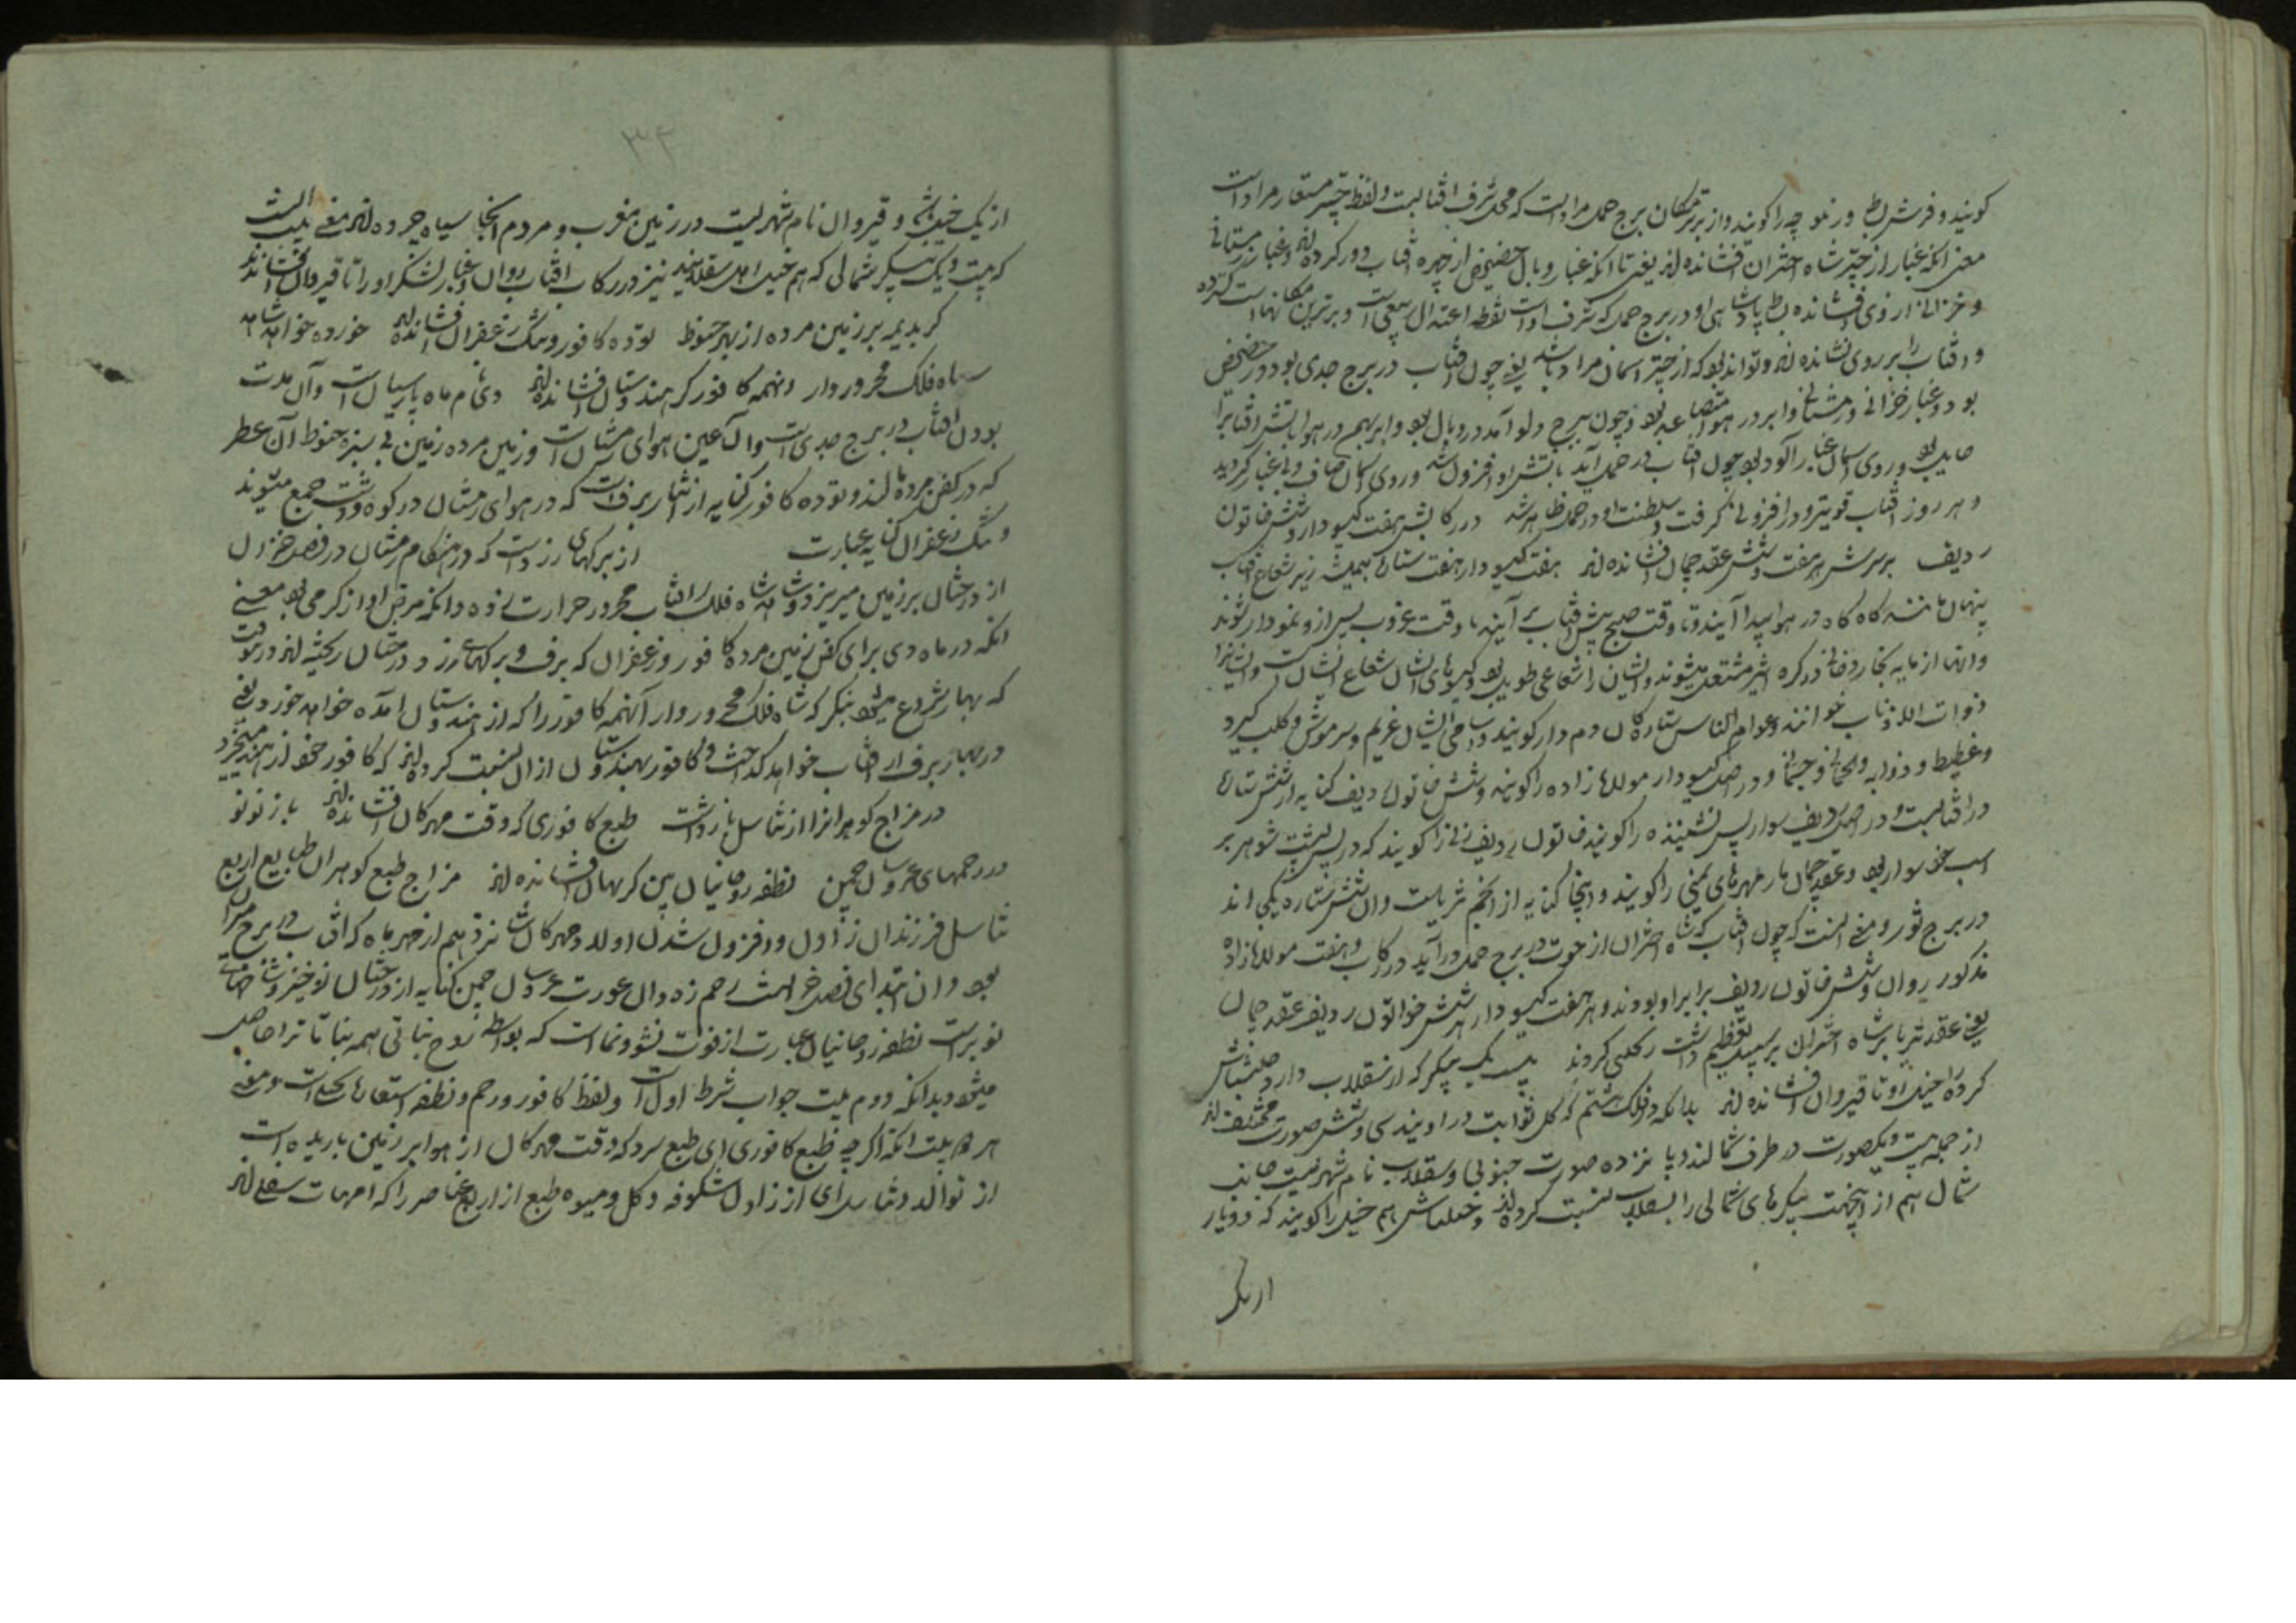 کویند و فرش بساط و زیلوچه را کویند و از برترمکان برج حمل مراد است که محل شرف افتابست و لفظ چتر مستعار مراد است
معنی انکه غبار از چتر شاه اختران افشانده اند یعنی تا انکه غبار وبال حضیض از چهره افتاب دور کرده اند و غبار زمستانی
و خزانی از وی افشانده بساط پادشاهی او در برج حمل که شرف اوست نقطه اعتدال ربیعی است و برترین مکانهاست کسترده
و افتاب را بر روی نشانده اند و تواند بود که از چتر اسمان مراد باشد یعنی چون افتاب در برج جدی بود در حضیض
بود و غبار خزانی و زمستانی و ابر در هوا متصاعد بود و چون ببرج دلو آمد در وبال بود و ابر بهم در هوا تابش افتاب را
حایل بود و روی اسمان غبار آلود بود چون افتاب در حمل آید تابش او افزون شد و روی اسمان صاف و بی غبار کردید
و هر روز افتاب قویتر و در افزونی کرفت و سلطنت او در حمل ظاهر شد در رکابش هفت کیسو دار و شش خاتون
ردیف بر سرش هر هفت و شش عقد جمان افشانده اند هفت کیسو دار هفت ستاره که همیشه زیر شعاع افتاب
پنهان باشند کاه کاه در هوا پیدا آیند و تا وقت صبح پیش افتاب بر آیند یا وقت غروب پس از و نمودار شوند
و انها از مایه بخار دخانی در کره اثیر مشتعل میشوند و ایشان را شعاعی طویل بود و کیسوهای ایشان شعاع ایشان است و ایشانرا
ذوات الاذناب خوانند و عوام الناس ستاره کان دم دار کویند و اسامی ایشان غریم و سرموش و کلب کبرد
و غطیط و ذوابه و لحیانی و جثمانی و در اصل کیسو دار مولازاده را کویند و شش خاتون ردیف کنایه از شش ستاره
در افتابست و در اصل ردیف سوار پس نشیننده را کویند خاتون ردیف زنی را کویند که در پس پشت شوهر بر
اسب خود سوار بود و عقد جمان بار مهره‌های یمنی را کویند و اینجا کنایه از انجم ثریاست و ان شش ستاره یکجی اند
در برج ثور و معنی انست که چون افتاب که شاه اختران از حوت در برج حمل درآید در رکاب او هفت مولازاده
مذکور روان و شش خاتون ردیف برابر او بودند و هر هفت کیسو دار بر شش خواتون ردیف عقد جمان
یعنی عقد ثریا بر شاه اختران بر سبیل تعظیم داشت رکلبی کردند بیست یک پیکر که از سقلاب دارد خیلتاش
کرده را خیل او تا قیروان افشانده اند بدانکه در فلک هشتم که کل ثوابت در اویند سی و شش صورت مختلف اند
از جمله بیست و یکصورت در طرف شمالند و پانزده صورت جنوبی و سقلاب نام شهریست جانب
شمال هم از اینجهت پیکرهای شمالی را بسقلاب نسبت کرده اند و خیلتاش هم خیل را کویند که دو یار
از یک
۳۴
از یک خیل باشند و قیروان نام شهریست در زمین مغرب و مردم انجا سیاه چرده اند معنی بیت انست
که بیست و یک پیکر شمالی که هم خیل اهل سقلابند نیز در رکاب افتاب روان و غبار لشکر او را تا قیروان افشاندند
کر بدیمه بر زمین مرده از بهر حنوط توده کافور و تنک زعفران افشانده اند خورده خواهد شاه
شاه فلک محرور وار انهمه کافور کز هندوستان افشانده اند دی نام ماه پارسیان است و آن مدت
بودن افتاب در برج جدی است و آن عین هوای زمستان است و زمین مرده زمین بی سبزه حنوط آن عطر
که در کفن مرده مالند و توده کافور کنایه از انبار برف است که در هوای زمستان در کوه و دشت جمع میشوند
و تنک زعفران کنایه عبارت از برکهای زرد است که در هنکام زمستان در فصل خزان
از درختان بر زمین میریزد و شاهنشاه فلک را افتاب محرور حرارت زده و انکه مرض او از کرمی بود معنی
انکه در ماه دی برای کفن زمین مرده کافور و زعفران که برف و برکهای زرد درختان ریخته اند در وقت
که بهار شروع میشود بنکر که شاه فلک محرور وار آنهمه کافور را که از هندوستان امده خواهد خورد یعنی
در بهار برف از افتاب خواهد کداخت و کافور بهندوستان از ان نسبت کرده اند که کافور خود از هند میخیزد
در مزاج کوهرانرا از تناسل بازداشت طبع کافوری که وقت مهرکان افشانده اند باز نو نو
در رحمهای عروسان چمن نطفه روحانیان بین کز نهان افشانده اند مزاج طبع کوهران طبایع اربع
تناسل فرزندان زادن و افزون شدن اولاد و مهرکان شانزدهم از مهر ماه که افتاب در برج میزان
بود و ان ابتدای فصل خزانست رحم زه دان عورت عروسان چمن کنایه از درختان نوخیز و شاخهای
نو برست نطفه روحانیان عبارت از قوت نشو و نما است که بواسطه روح نباتی همه نباتات را حاصل
میشود و بدانکه دوم بیت جواب شرط اول است و لفظ کافور و رحم و نطفه استعارات کحیل است و معنی
هر دو بیت انکه اکر چه طبع کافوری ای طبع سرد که وقت مهرکان از هوا بر زمین باریده است
از توالد و تناسل ای از زادن شکوفه و کل و میوه طبع از اربع عناصر را که امهات سفلی اند